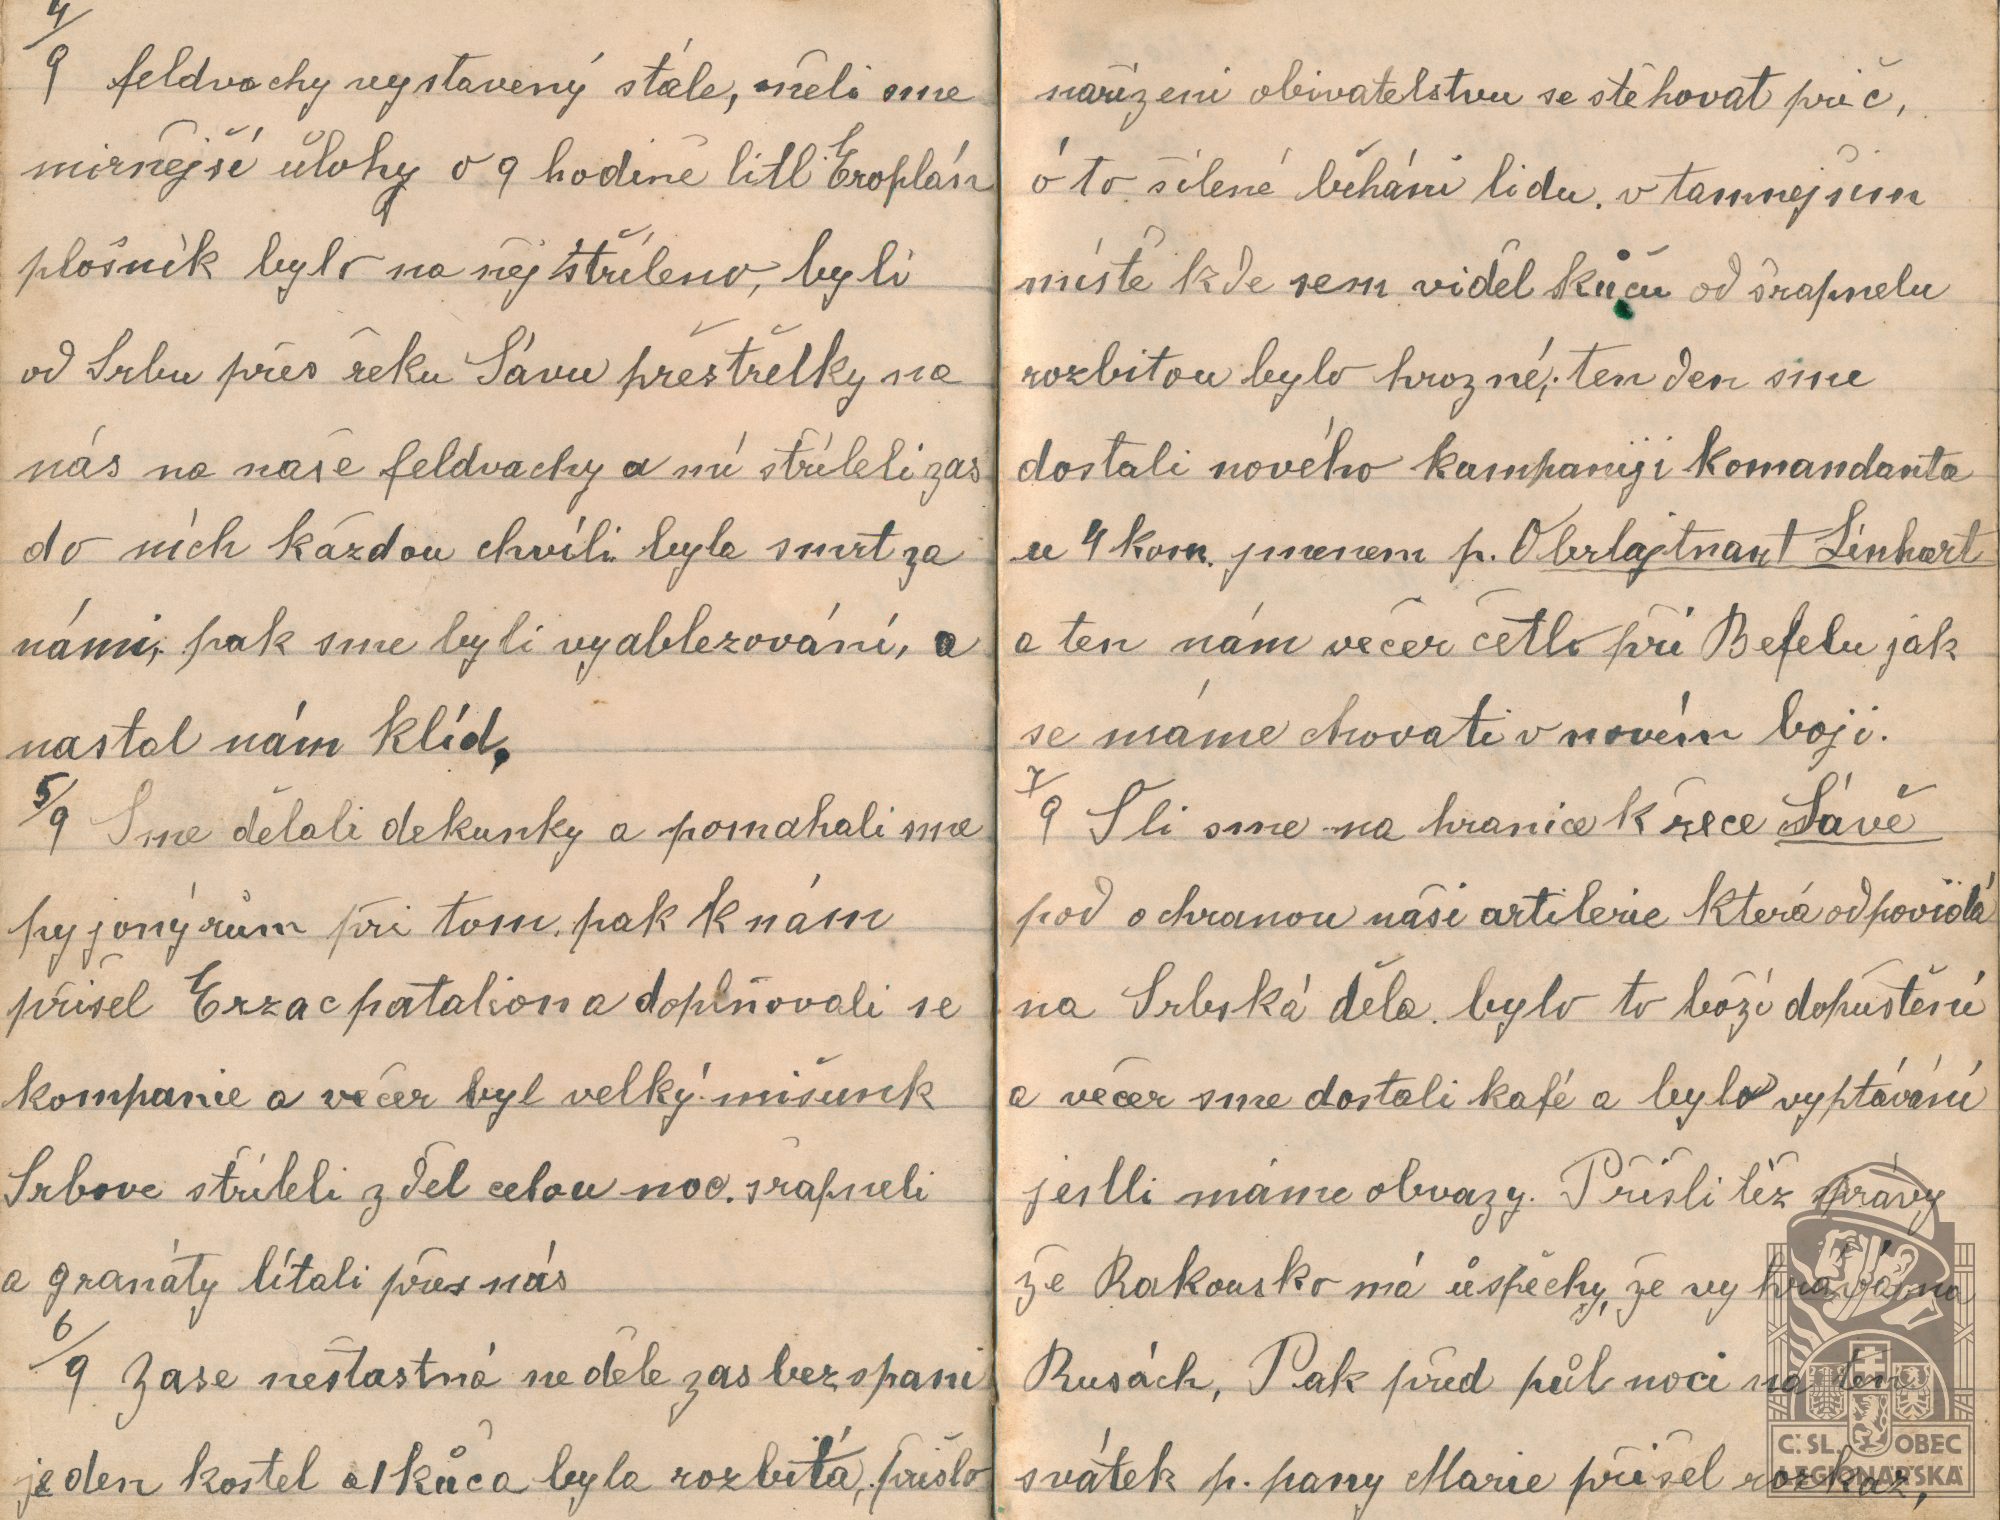 4/9 feldvachy vystavený stále, měli sme
mirnějšé ůlohy o 9 hodině litl Eroplán
plošnik bylo na něj střileno, byli
od Srbu přes řeku Sávu přestřelky na
nás na naše feldvachy a mi stříleli zas
do ních každou chvíli byla smrt za
námi, pak sme byli vyablezováni, a
nastal nám klíd,
5/9 Sme dělali dekunky a pomahali sme
pyjonýrům při tom, pak k nám
přišel Erzac patalion a doplňovali se
kompanie a večer byl velký mišunk
Srbove stříleli z děl celou noc. šrapneli
a granáty lítali přes nás
6/9 Zase neštastná neděle zas bez spani
jeden kostel a 1 kůča byla rozbitá, přišlo
nařizeni obivatelstvu se stěhovat prič,
ó to šílené běháni lidu. v tamnejšim
místě kde sem viděl kůču od šrapnelu
rozbitou bylo hrozné; ten den sme
dostali nového kumpaniji komandanta
u 4 kom. jmenem p. Obrlajtnant Linhart
a ten nám večer četlo při Befelu jak
se máme chovati v novém boji.
7/9 Šli sme na hranice k řece Sávě
pod ochranou náši artilerie která odpovidá
na Srbská děla. bylo to boží dopuštění
a večer sme dostali kafé a bylo vyptávání
jestli máme obvazy. Přišli též správy
že Rakousko má ůspěchy, že vyhrává na
Rusách, Pak před půl noci na ten
svátek p. pany Marie přišel rozkaz,
Č. SL. OBEC
LEGIONÁŘSKÁ